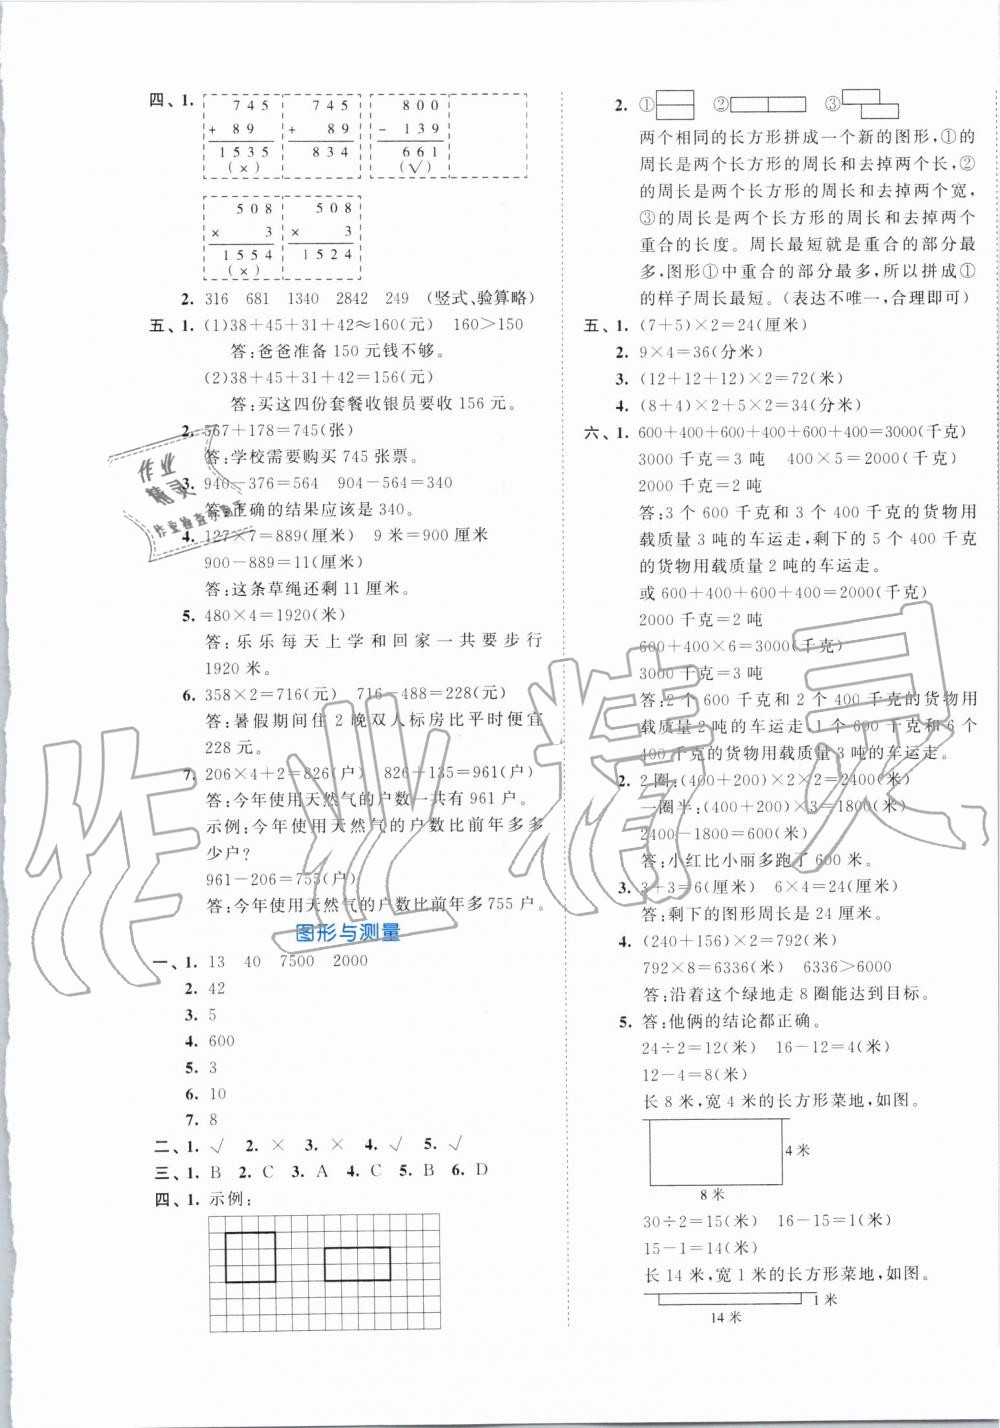 四、1.
745 745 800
+ 89 + 89 - 139
1535 834 661
(×) (√)
508 508
× 3 × 3
1554 1524
(×)
2. 316 681 1340 2842 249 (竖式、验算略)
五、1. (1)38+45+31+42≈160(元) 160>150
答:爸爸准备 150 元钱不够。
(2)38+45+31+42=156(元)
答:买这四份套餐收银员要收 156 元。
2. 567+178=745(张)
答:学校需要购买 745 张票。
3. 940-376=564 904-564=340
答:正确的结果应该是 340。
4. 127×7=889(厘米) 9 米=900 厘米
900-889=11(厘米)
答:这条草绳还剩 11 厘米。
5. 480×4=1920(米)
答:乐乐每天上学和回家一共要步行
1920 米。
6. 358×2=716(元) 716-488=228(元)
答:暑假期间住 2 晚双人标房比平时便宜
228 元。
7. 206×4+2=826(户) 826+135=961(户)
答:今年使用天然气的户数一共有 961 户。
示例:今年使用天然气的户数比前年多多
少户?
961-206=755(户)
答:今年使用天然气的户数比前年多 755 户。
图形与测量
一、1. 13 40 7500 2000
2. 42
3. 5
4. 600
5. 3
6. 10
7. 8
二、1. √ 2. × 3. × 4. √ 5. √
三、1. B 2. C 3. A 4. C 5. B 6. D
四、1. 示例:
2. ① ② ③
两个相同的长方形拼成一个新的图形,①的
周长是两个长方形的周长和去掉两个长,②
的周长是两个长方形的周长和去掉两个宽,
③的周长是两个长方形的周长和去掉两个
重合的长度。周长最短就是重合的部分最
多,图形①中重合的部分最多,所以拼成①
的样子周长最短。(表达不唯一,合理即可)
五、1. (7+5)×2=24(厘米)
2. 9×4=36(分米)
3. (12+12+12)×2=72(米)
4. (8+4)×2+5×2=34(分米)
六、1. 600+400+600+600+400+400=3000(千克)
3000 千克=3 吨 400×5=2000(千克)
2000 千克=2 吨
答:3 个 600 千克和 3 个 400 千克的货物用
载质量 3 吨的车运走,剩下的 5 个 400 千克
的货物用载质量 2 吨的车运走。
或 600+400+600+400=2000(千克)
2000 千克=2 吨
600+400×6=3000(千克)
3000 千克=3 吨
答:2 个 600 千克和 2 个 400 千克的货物用
载质量 2 吨的车运走,1 个 600 千克和 6 个
400 千克的货物用载质量 3 吨的车运走。
2. 2 圈:(400+200)×2×2=2400(米)
一圈半:(400+200)×3=1800(米)
2400-1800=600(米)
答:小红比小丽多跑了 600 米。
3. 3+3=6(厘米) 6×4=24(厘米)
答:剩下的图形周长是 24 厘米。
4. (240+156)×2=792(米)
792×8=6336(米) 6336>6000
答:沿着这个绿地走 8 圈能达到目标。
5. 答:他俩的结论都正确。
24÷2=12(米) 16-12=4(米)
12-4=8(米)
长 8 米,宽 4 米的长方形菜地,如图。
4 米
8 米
30÷2=15(米) 16-15=1(米)
15-1=14(米)
长 14 米,宽 1 米的长方形菜地,如图。
1 米
14 米
作业
精灵
作业检查小助手
作业精灵